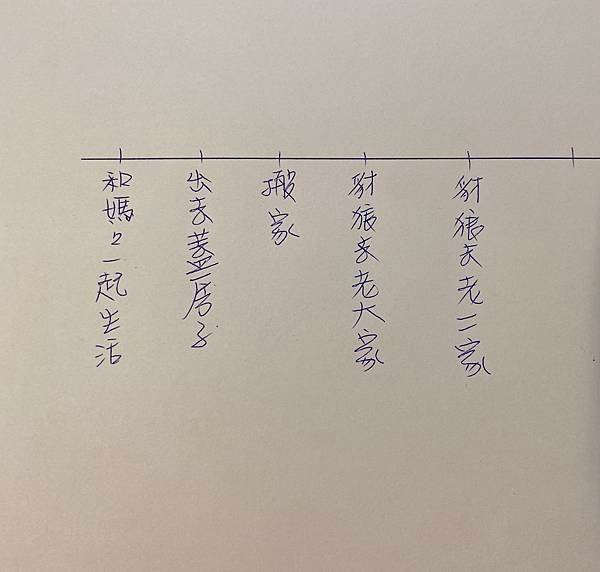 和媽々一起生活
出去蓋房子
搬家
豺狼去老大家
豺狼去老二家